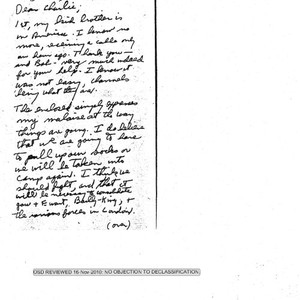 Dear Charlie,
1st, my kid brother is
in America. I know no
more, receiving a cable only
an hour ago. Thank you —
and Bob — very much indeed
for your help. I know it
was not easy, channels
being what they are.
The enclosed simply expresses
my malaise at the way
things are going. I do believe
that we are going to have
to pull up our socks or
we will be taken into
camp again. I think we
should fight, and that it
will be necessary to
you +
the various forces in London.
(over)
OSD REVIEWED 16-Nov-2010: NO OBJECTION TO DECLASSIFICATION.